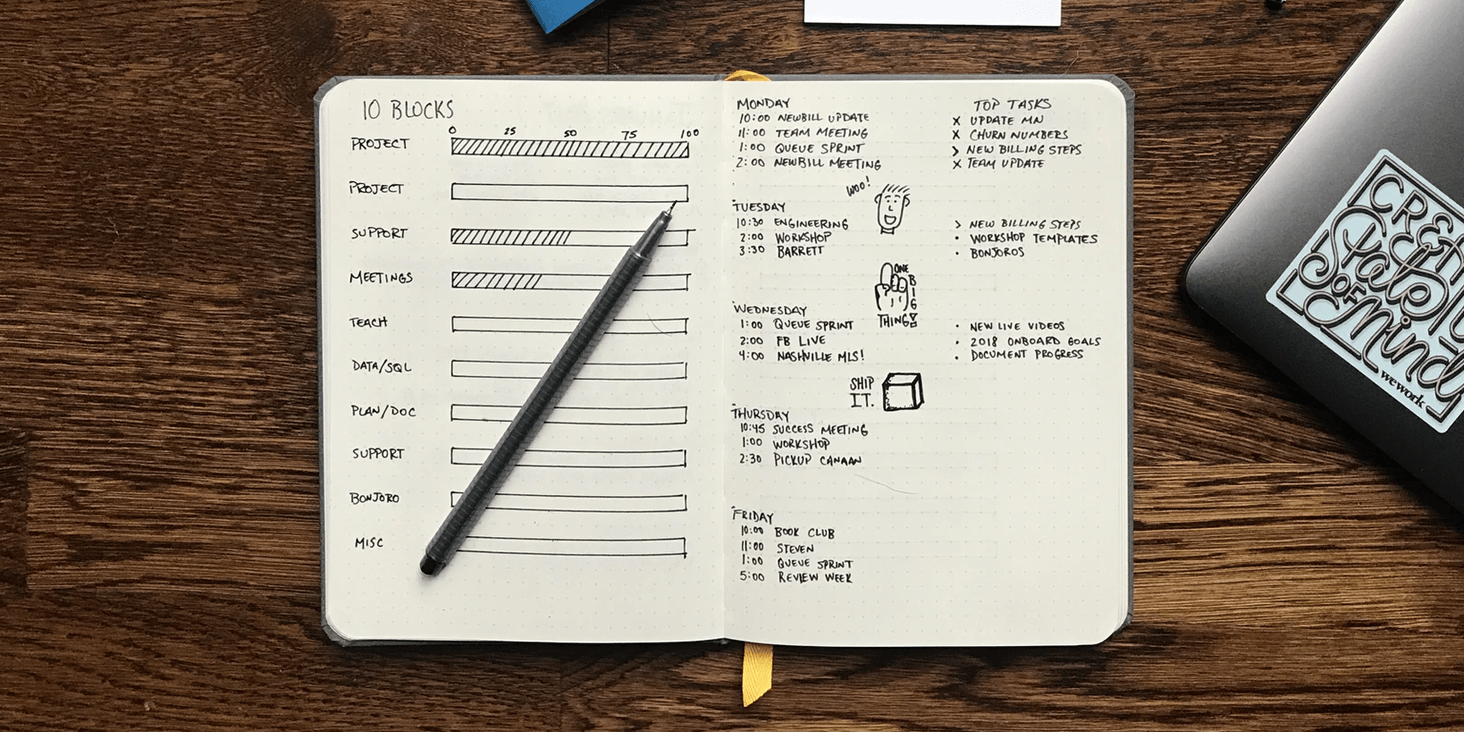 10 BLOCKS
0 25 50 75 100
PROJECT
PROJECT
SUPPORT
MEETINGS
TEACH
DATA/SQL
PLAN/DOC
SUPPORT
BONJORO
MISC
MONDAY
10:00 NEWBILL UPDATE
11:00 TEAM MEETING
1:00 QUEUE SPRINT
2:00 NEWBILL MEETING
TOP TASKS
X UPDATE MN
X CHURN NUMBERS
> NEW BILLING STEPS
X TEAM UPDATE
WOO!
TUESDAY
10:30 ENGINEERING
2:00 WORKSHOP
3:30 BARRETT
> NEW BILLING STEPS
• WORKSHOP TEMPLATES
• BONJOROS
ONE
BIG
THING!
WEDNESDAY
1:00 QUEUE SPRINT
2:00 FB LIVE
4:00 NASHVILLE MLS!
• NEW LIVE VIDEOS
• 2018 ONBOARD GOALS
• DOCUMENT PROGRESS
SHIP
IT.
THURSDAY
10:45 SUCCESS MEETING
1:00 WORKSHOP
2:30 PICKUP CANAAN
FRIDAY
10:00 BOOK CLUB
11:00 STEVEN
1:00 QUEUE SPRINT
5:00 REVIEW WEEK
State
OF
Mind
wework